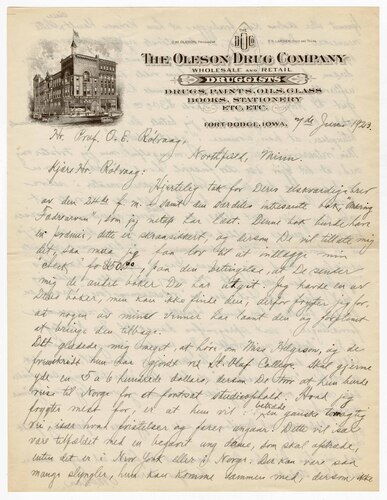 O. M. OLESON, PRESIDENT
THE OLESON DRUG COMPANY
WHOLESALE AND RETAIL
DRUGGISTS
DRUGS, PAINTS, OILS, GLASS
BOOKS, STATIONERY
ETC. ETC.
FORT DODGE, IOWA, 7de Juni 1923
Hr. Prof. O. E. Rölvaag,
Northfield, Minn.
Kjære Hr. Rölvaag:
Hjertelig tak for Deres elskværdige brev
av den 24de f. m. samt den særdeles interesante bok,
som jeg netop har læst. Denne bok burde have
en præmie, dette er storartet, og dersom De vil tillate mig
det, saa maa jeg faa lov til at vedlægge min
"check" for $50.00, paa den betingelse at De sender
mig de andre bøker De har utgit. Jeg havde en av
Deres bøker, men kan ikke finde den; derfor frygter jeg for,
at nogen av mine venner har laant den og forglemt
at bringe den tilbage.
Det glædede mig meget at höre om Miss Helgeson, og de
fremskridt hun har gjort ved St. Olaf College. Skal gjerne
yde en 5 a 6 hundrede dollars, dersom De tror at hun burde
reise til Norge for at fortsætte studierne. Hvad jeg
frygter mest for, er at hun vil betræde en ganske tornefuld
vei, især hvad fristelser og farer angaar. Dette vil især
være tilfældet med en begavet ung dame, som skal optræde,
enten det er i New York eller i Norge. Der kan være saa
mange slyngler, hun kan komme sammen med, dersom ikke